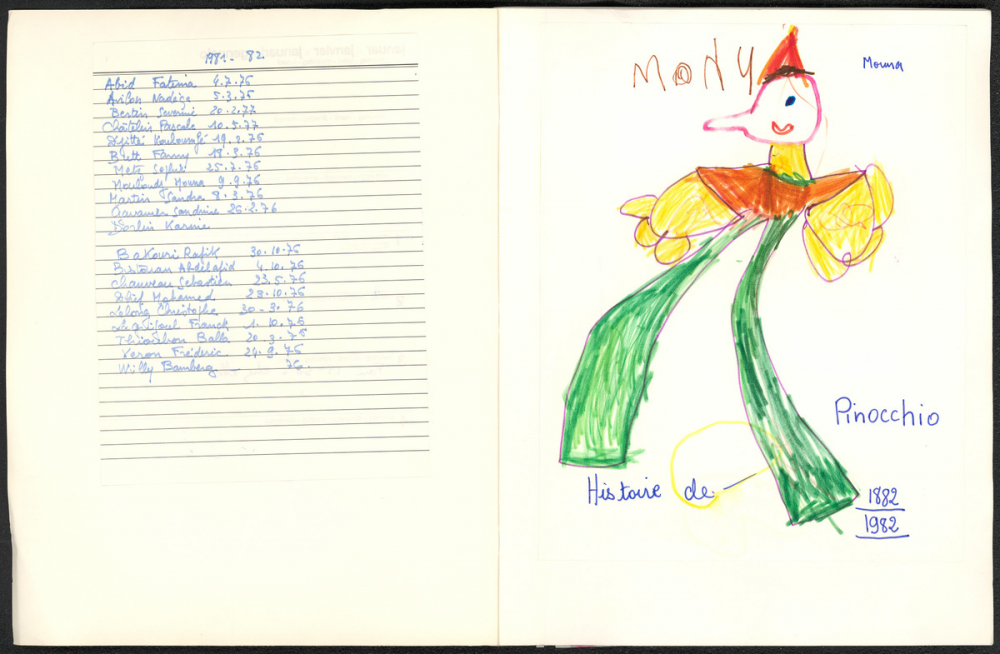 1981-82
Abid Fatima 4.7.76
Avilon Nadège 5.3.76
Bertin Séverine 20.2.77
Châtelin Pascale 10.5.77
19.2.76
Brett Fanny 18.9.76
Metz Sophie 25.7.76
Mouloudi Mouna 9.9.76
Martin Sandra 8.3.76
Sandrine 26.2.76
Karine
Bakouri Rafik 30.10.76
Abdelafid 4.10.76
Chauveau Sébastien 23.5.76
Mohamed 28.10.76
Lelong Christophe 30-3.76
Franck 1.10.76
Balla 20.3.76
Veron Frédéric 24.9.76
Willy Bamberg 76.
MONY
Mouna
Pinocchio
Histoire de
1882
1982